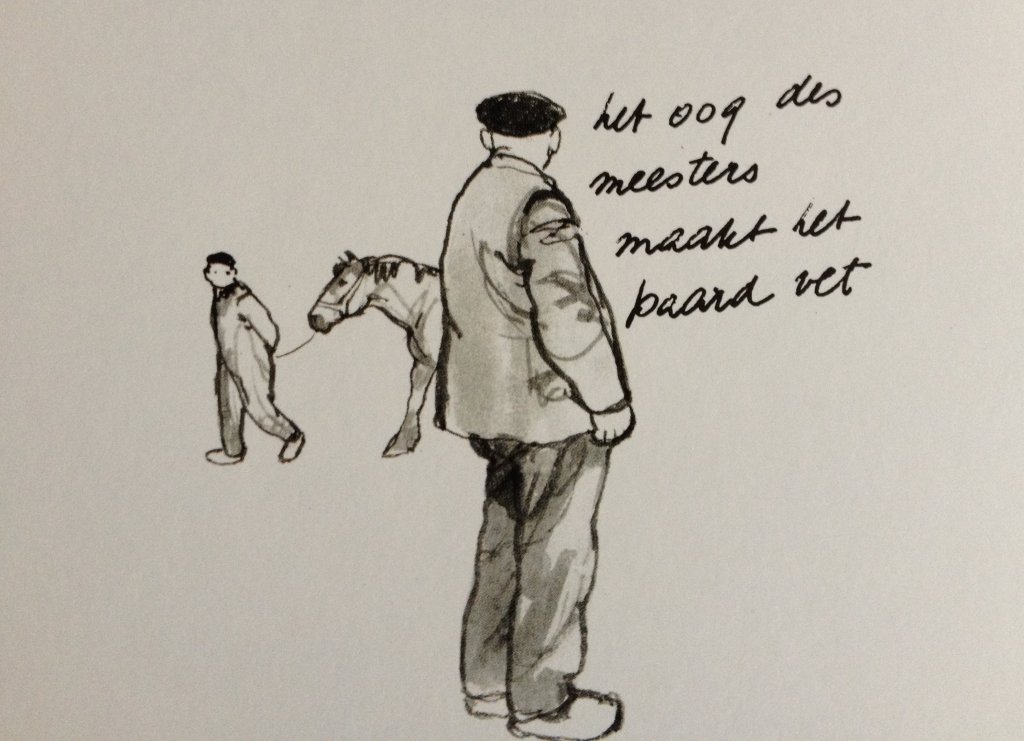 het oog des
meesters
maakt het
paard vet